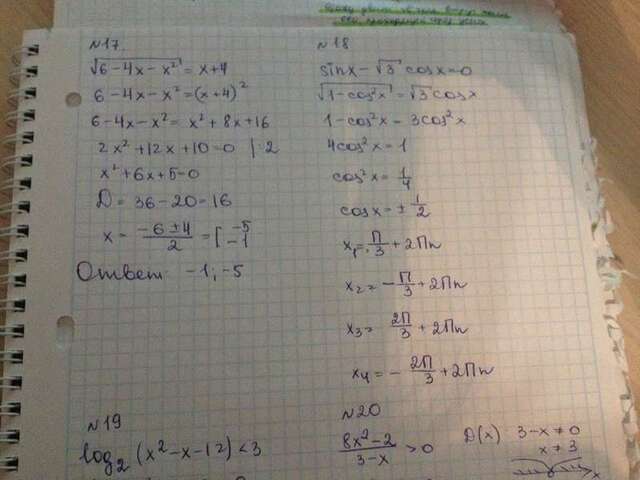 №17
√6-4x-x² = x+4
6-4x-x² = (x+4)²
6-4x-x² = x²+8x+16
2x²+12x+10=0 | :2
x²+6x+5=0
D = 36-20=16
x = (-6±4)/2 = [-5 -1
Ответ: -1; -5
№18
sinx - √3 cosx=0
√1-cos²x = √3 cosx
1-cos²x = 3cos²x
4cos²x = 1
cos²x = 1/4
cosx = ± 1/2
x₁ = П/3 + 2Пn
x₂ = -П/3 + 2Пn
x₃ = 2П/3 + 2Пn
x₄ = - 2П/3 + 2Пn
№19
log₂ (x²-x-12) < 3
№20
(8x²-2)/(3-x) > 0
D(x) 3-x ≠ 0
x ≠ 3
x